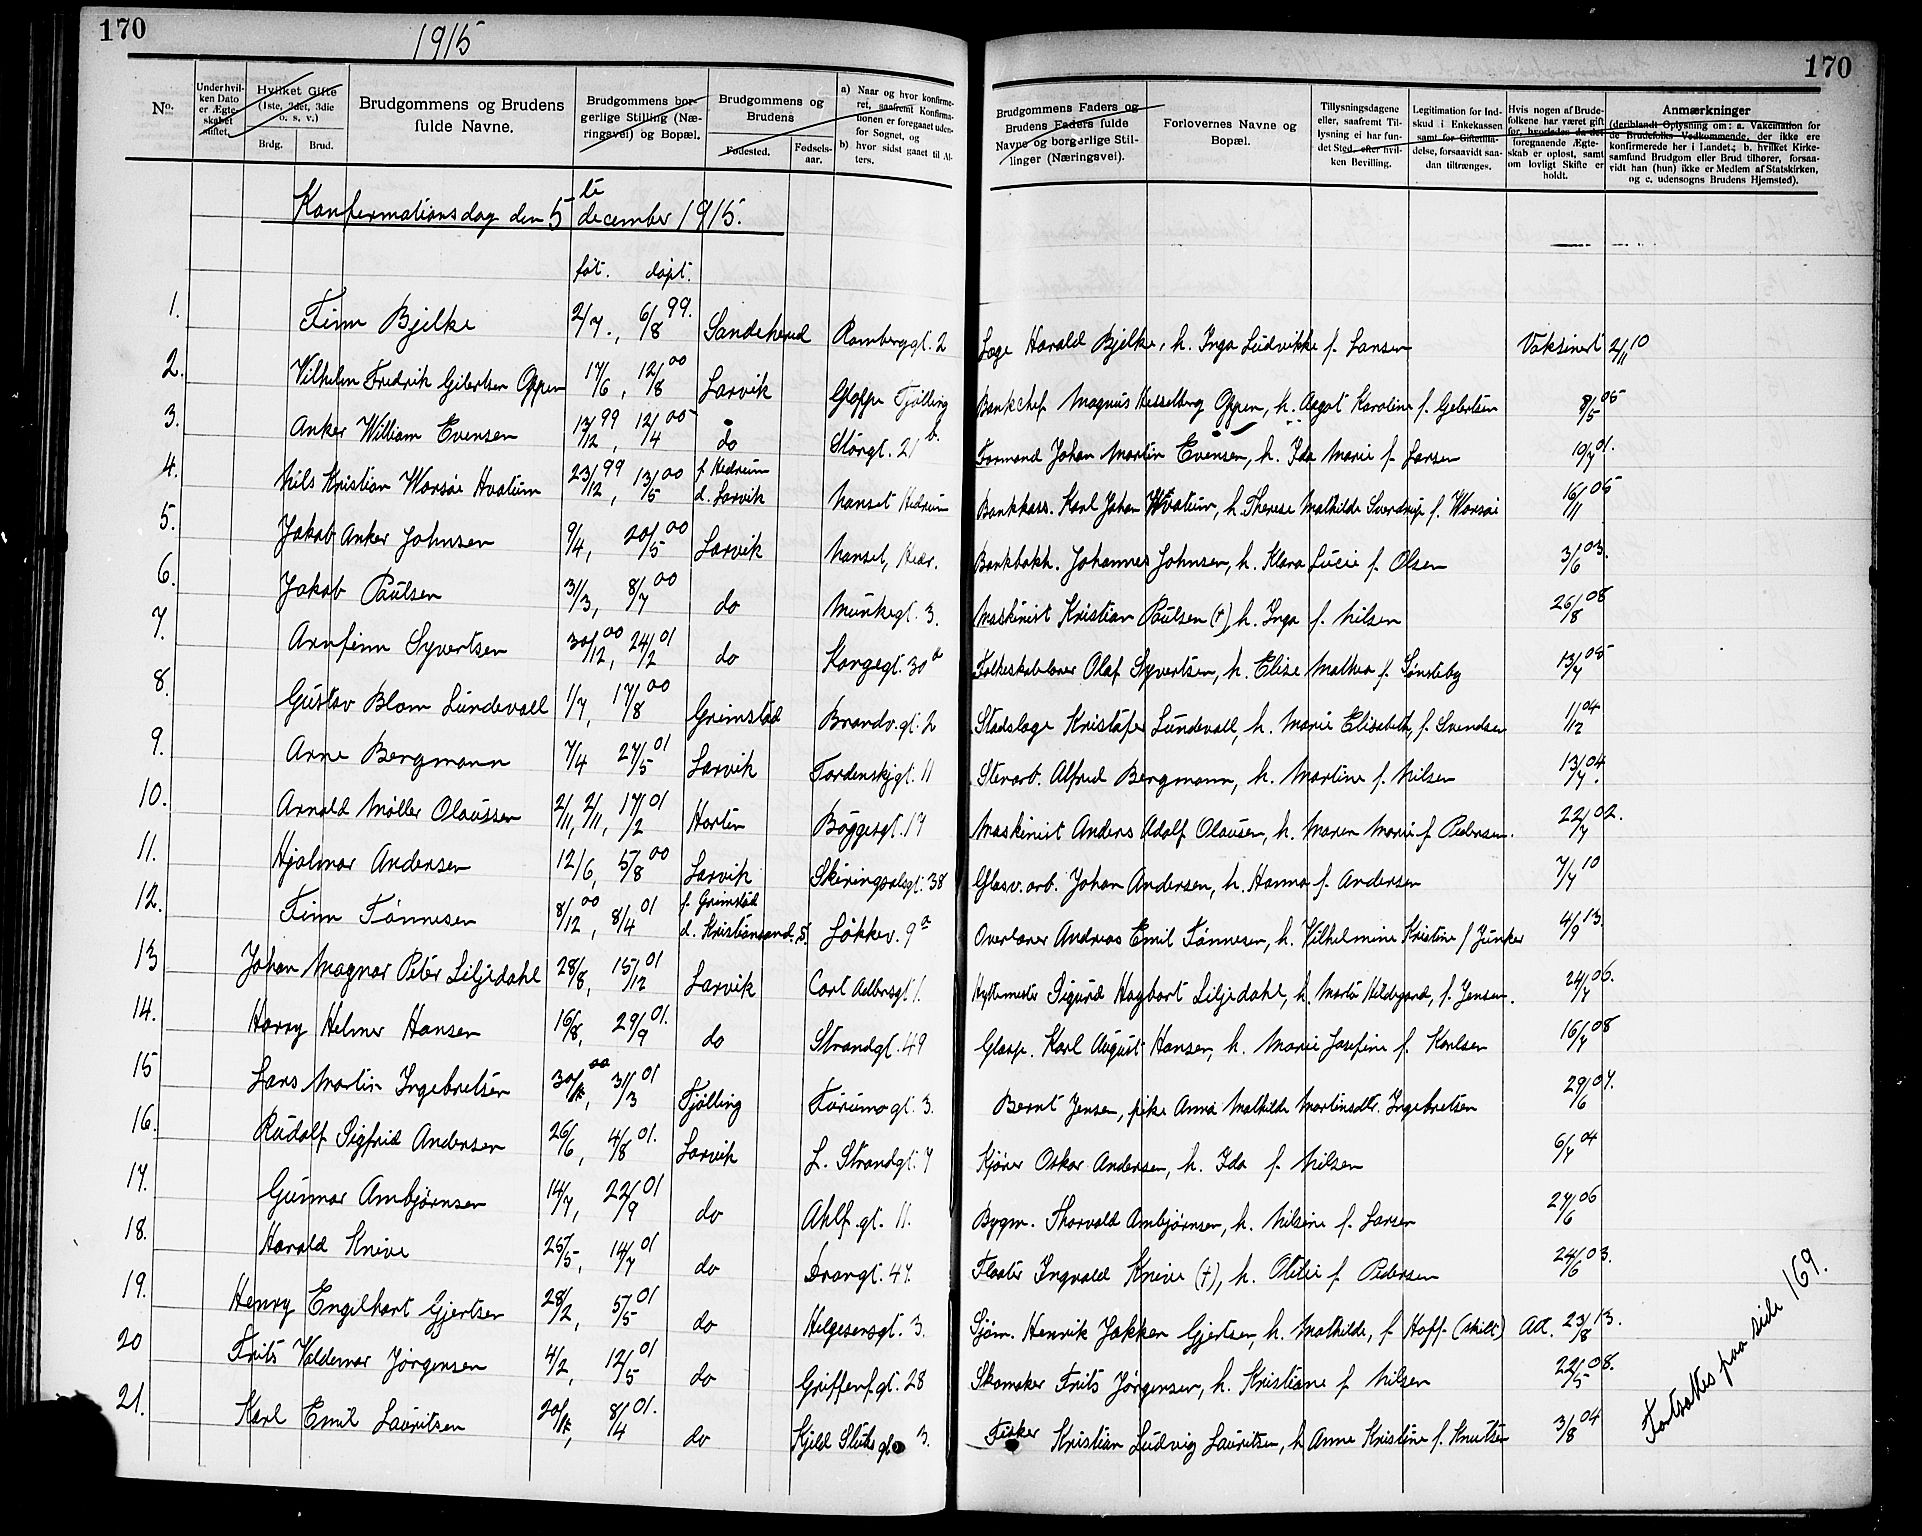 170
1915
No.
Under hvilken Dato er Ægteskabet stiftet.
Hvilket Gifte (1ste, 2det, 3die o. s. v.)
Brdg.
Brud.
Brudgommens og Brudens fulde Navne.
Brudgommens borgerlige Stilling (Næringsvei) og Bopæl.
Brudgommens og Brudens
Fødested.
Fødselsaar.
a) Naar og hvor konfirmeret, saafremt Konfirmationen er foregaaet udenfor Sognet, og
b) hvor sidst gaaet til Alters.
170
Brudgommens Faders og Brudens Faders fulde Navne og borgerlige Stillinger (Næringsvei).
Forlovernes Navne og Bopæl.
Tillysningsdagene eller, saafremt Tillysning ei har fundet Sted, efter hvilken Bevilling.
Legitimation for Indskud i Enkekassen samt for Giftetilladelse, forsaavidt saadan tiltrænges.
Hvis nogen af Brudefolkene har været gift før, hvorledes da det foregaaende Ægteskab er opløst, samt om lovligt Skifte er holdt.
Anmærkninger
(deriblandt Oplysning om: a. Vakcination for de Brudefolks Vedkommende, der ikke ere konfirmerede her i Landet; b. hvilket Kirkesamfund Brudgom eller Brud tilhører, forsaavidt han (hun) ikke er Medlem af Statskirken, og c. udensogns Brudens Hjemsted).
Konfermationsdag den 5te december 1915.
føt. døpt.
1. Finn Bjelke 2/7., 6/8 99. Sandeherred Ramberggt. 2 Læge Harald Bjelke, h. Inga Ludvikke f. Larsen Vaksinert 2/11 10
2. Vilhelm Fredrik Gilertsen Oppen 17/6, 12/8 00 Larvik Gloppe Tjølling Bankchef Magnus Hesselberg Oppen, h. Aagot Karoline f. Gilertsen 8/5 05
3. Anker William Evensen 13/12 99, 12/4 00 do Storgt. 21 b. Formand Johan Martin Evensen, h. Ida Marie f. Larsen 10/7 01.
4. Nils Kristian Warsøe Hvatum 23/12 99, 13/5 00 f. Hedrum d. Larvik Nanset Hedrum Bankkass. Karl Johan Hvatum, h. Therese Mathilde Sverdrup f. Warsøe 16/11 05
5. Jakob Anker Johnsen 9/4, 20/5 00 Larvik Nanset, Hedr. Bankbokh. Johannes Johnsen, h. Klara Lucie f. Olsen 3/6 03.
6. Jakob Paulsen 31/3, 8/7 00 do Munkegt. 3. Maskinist Kristian Paulsen (†), h. Inga f. Nilsen 26/8 08
7. Arnfinn Syvertsen 30/12 00, 24/2 01 do Kongegt. 30 a Folkeskolelærer Olaf Syvertsen, h. Elise Mathea f. Sønsteby 13/7 05
8. Gustav Blom Lundevall 1/7, 17/8 00 Grimstad Brandv.gt. 2 Stadslæge Kristofer Lundevall, h. Marie Elisabeth, f. Svendsen 1/12 04
9. Arne Bergmann 7/4 27/5 01 Larvik Tordenskjgt. 11 Stenarb. Alfred Bergmann, h. Martine f. Nilsen 13/7 04.
10. Arnold Møller Olaussen 2/11, 2/11, 17/2 01 Horten Bøggesgt. 17 Maskinist Anders Adolf Olausen, h. Maren Marie f. Pedersen. 22/7 02.
11. Hjalmar Andersen 12/6, 5/8 00 Larvik Skiringsalsgt. 38 Glasv. arb. Johan Andersen, h. Hanna f. Andersen 7/7 10
12. Finn Tønnesen 8/12 00, 8/4 01 f. Grimstad d. Kristiansand. S. Løkkev. 9 a Overlærer Andreas Emil Tønnesen, h. Vilhelmine Kristine f. Junker 4/9 13.
13 Johan Magnar Peter Liljedahl 28/8, 15/12 01 Larvik Carl Ahlersgt. 1. Hyttemester Sigurd Hagbart Liljedahl, h. Marta Hildegard, f. Jensen. 24/7 06.
14. Harry Helmer Hansen 16/8, 29/9 01. do Strandgt. 49 Glasp. Karl August Hansen, h. Marie Josefine f. Karlsen 16/7 08
15 Lars Martin Ingebretsen 30/12 00, 31/3 01 Tjølling Torumogt. 3. Bernt Jensen, pike Anna Mathilde Martinsdtr. Ingebretsen 29/6 07.
16. Rudolf Sigfrid Andersen 26/6, 4/8 01. Larvik L. Strandgt. 7 Kjører Oskar Andersen, h. Ida f. Nilsen 6/7 04
17. Gunnar Ambjørnsen 14/7, 22/9 01 do Ahlf.gt. 11. Bygm. Thorvald Ambjørnsen, h. Nilsine f. Larsen 27/6 06
18. Harald Knive 25/5, 14/7 01 do Drangt. 47. Fløter Ingvald Knive (†), h. Otilie f. Pedersen 24/6 03.
19. Henry Engelhart Gjertsen 28/2, 5/5 01 do Helgesensgt. 3. Sjøm. Henrik Jakken Gjertsen, h. Mathilde, f. Hoff. (skilt) Att. 23/8 13.
20 Frits Valdemar Jørgensen 4/2, 12/5 01 do Griffenf.gt. 28 Skomaker Frits Jørgensen, h. Kristiane f. Nilsen 22/5 08.
21. Karl Emil Lauritsen 20/12, 8/4 01. do Kjeld Stubsgt. 3. Fisker Kristian Ludvig Lauritsen, h. Anne Kristine f. Knutsen 3/8 04
Fortsættes paa side 169.